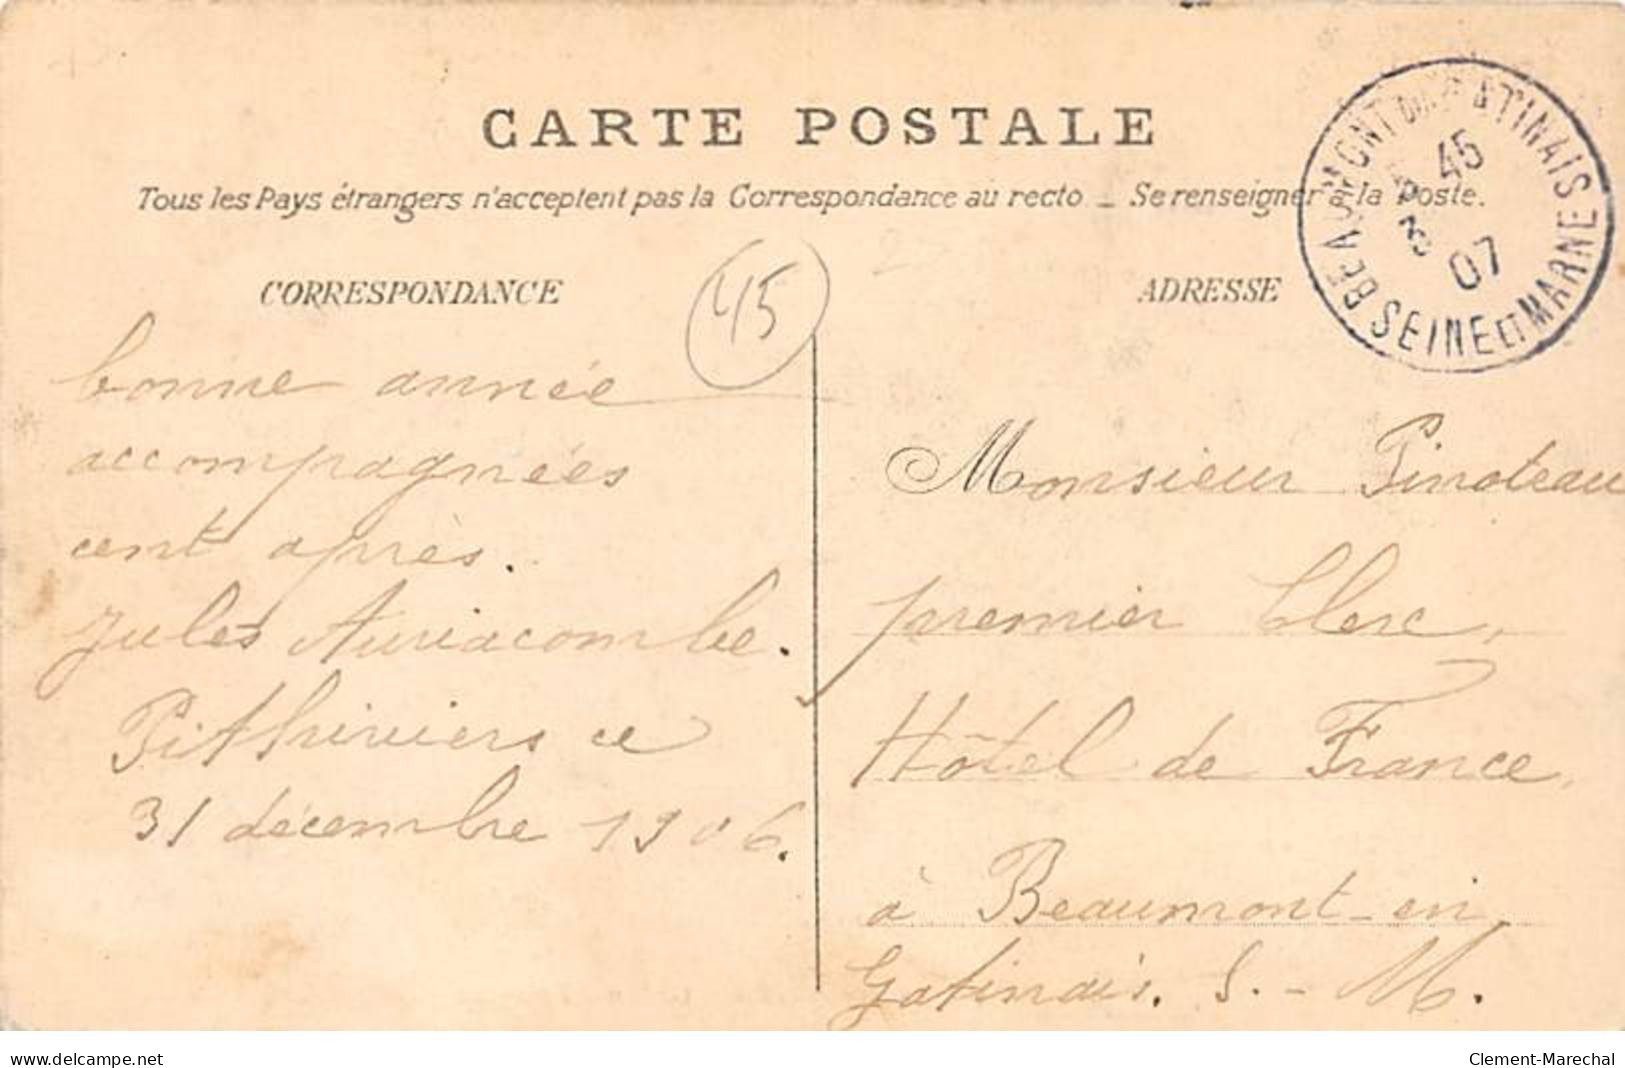 CARTE POSTALE
Tous les Pays étrangers n'acceptent pas la Correspondance au recto _ Se renseigner à la Poste.
BEAUMONT DU GATINAIS
45
3
07
SEINE ET MARNE
CORRESPONDANCE
45
bonne année
accompagnées
cent après.
Jules Auriacombe.
Pithiviers ce
31 décembre 1906.
ADRESSE
Monsieur Pinoteau
premier Clerc,
Hôtel de France,
à Beaumont-en
Gatinais. S.-M.
www.delcampe.net
Clement-Marechal